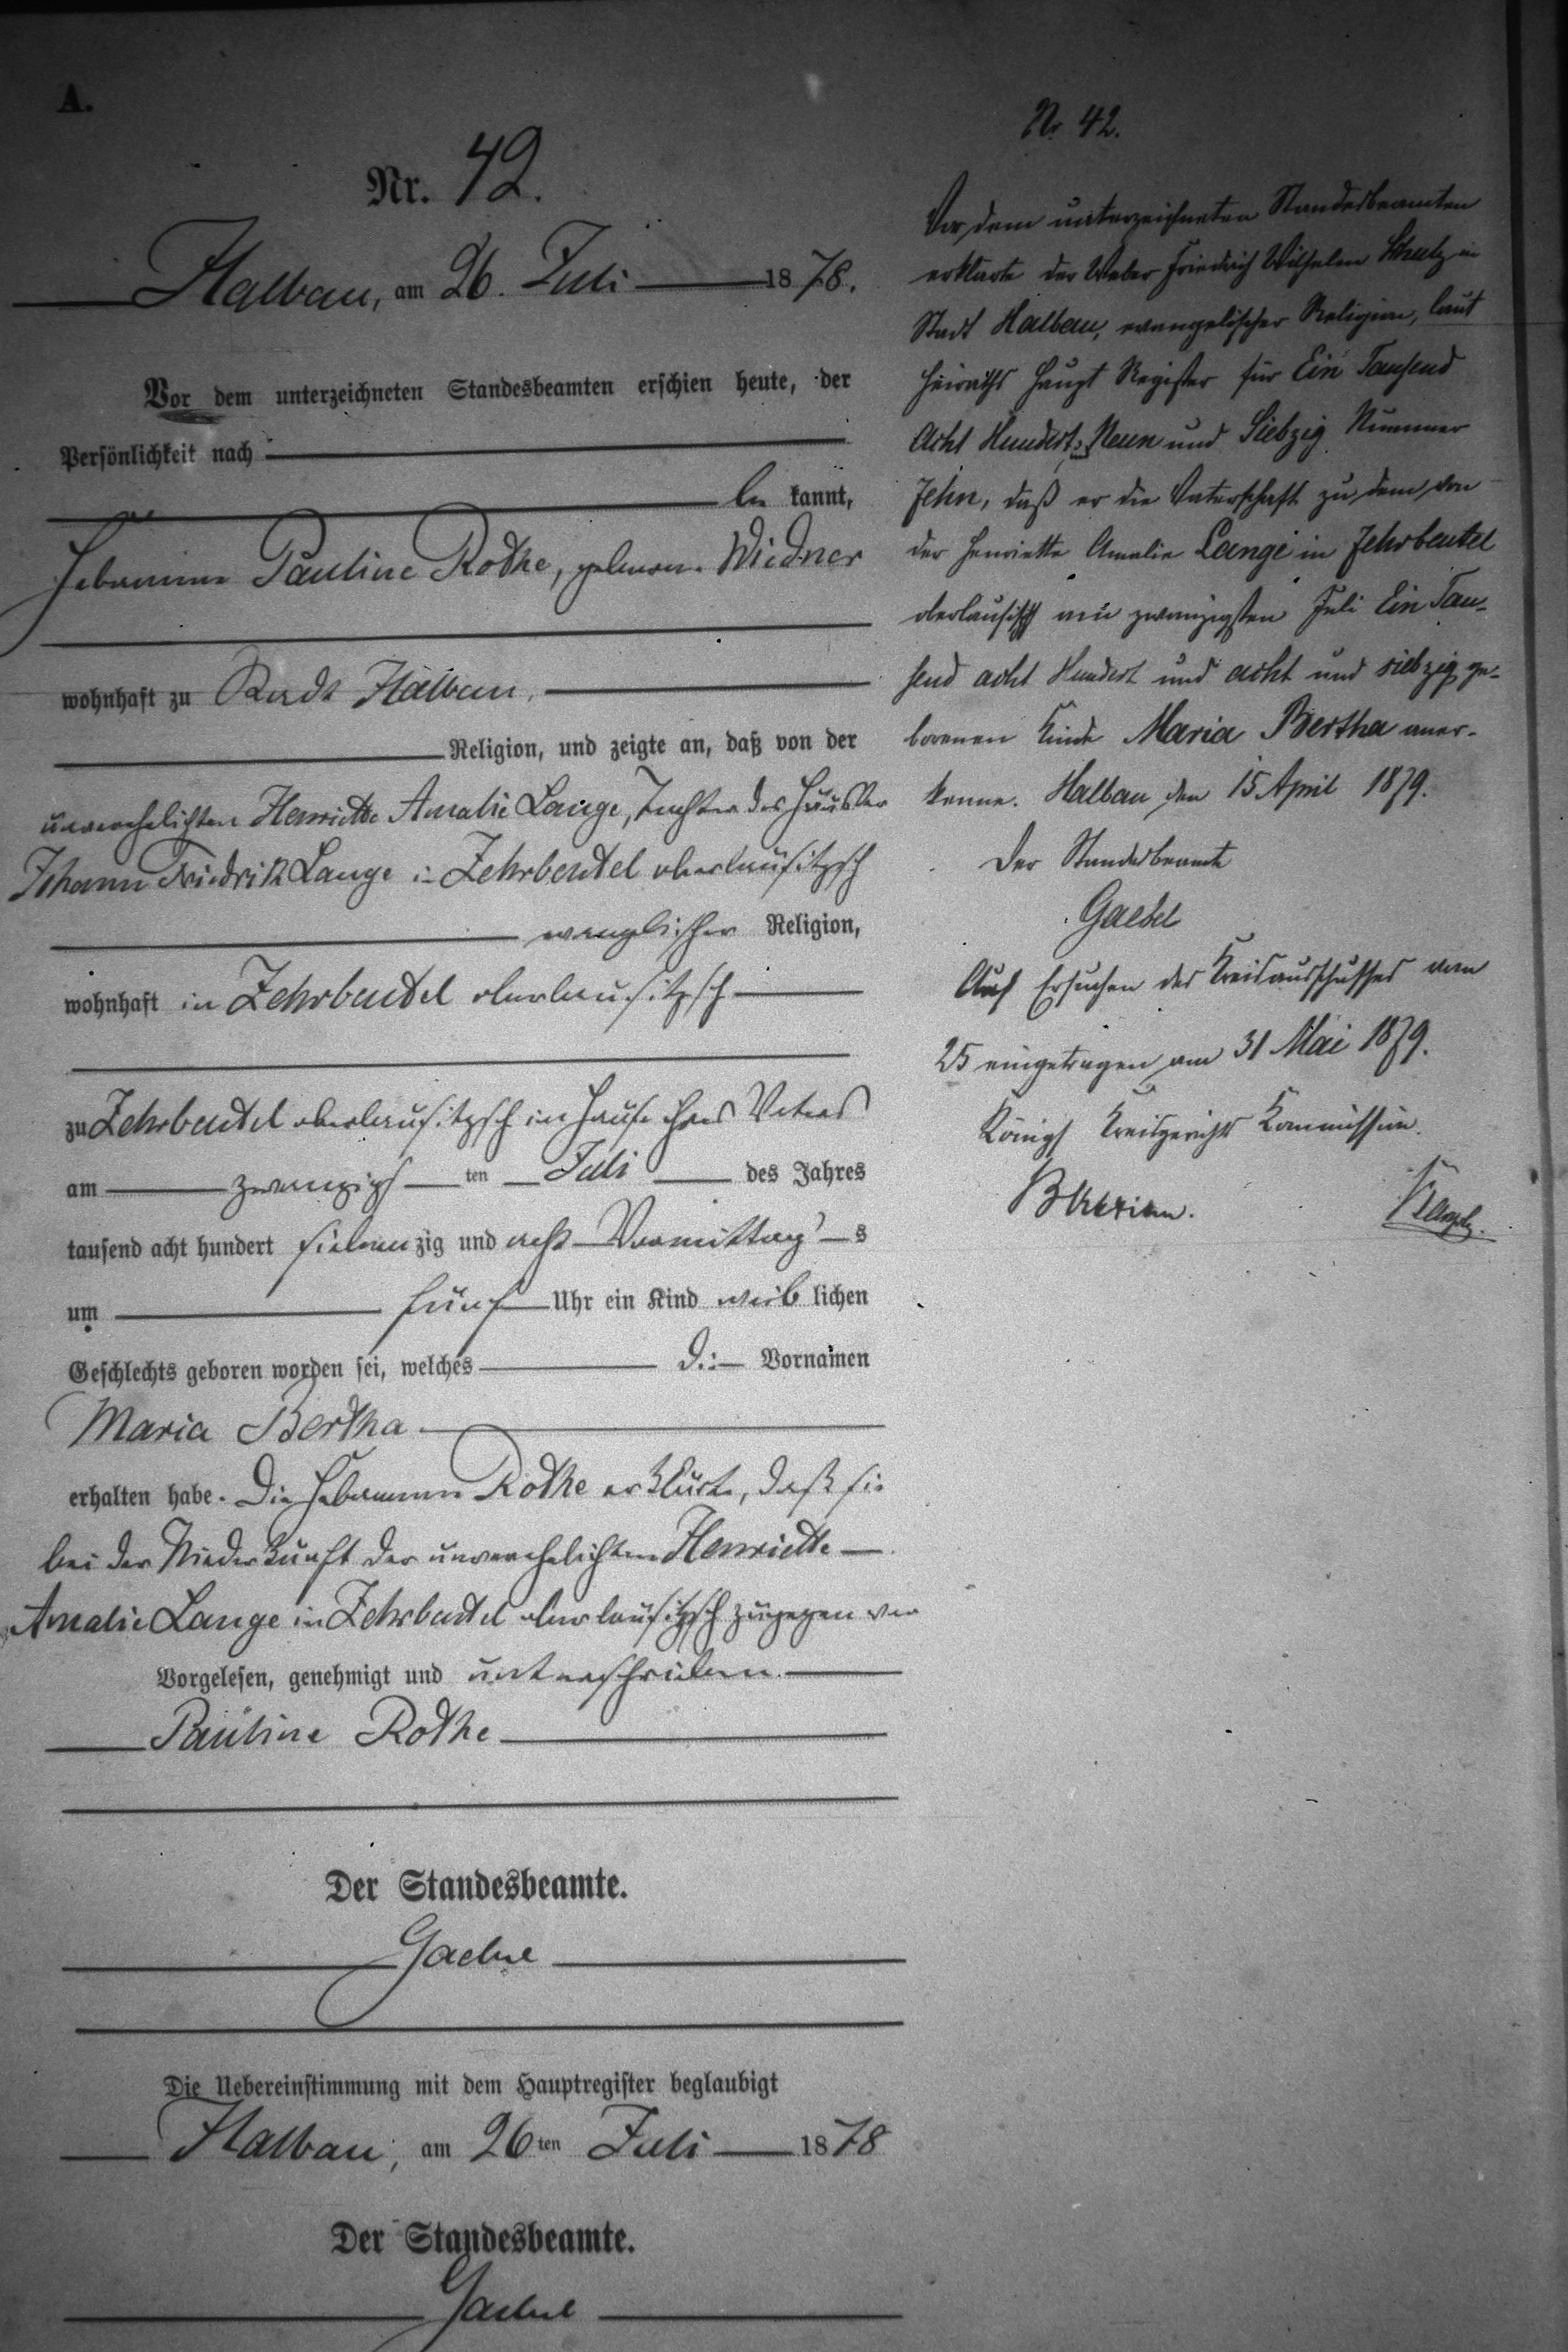 A.
Nr. 42.
Halbau, am 26. Juli 1878.
Vor dem unterzeichneten Standesbeamten erschien heute, der
Persönlichkeit nach
be kannt,
Hebamme Pauline Rothe, geborene Wiedner
wohnhaft zu Stadt Halbau,
Religion, und zeigte an, daß von der
unverehelichten Henriette Amalie Lange, Tochter des Häusler
Johann Friedrik Lange in Zehrbeutel oberlausitzsch
evanglischer Religion,
wohnhaft in Zehrbeutel oberlausitzsch
zu Zehrbeutel oberlausitzsch im Hause ihres Vaters
am zwanzigsten Juli des Jahres
tausend acht hundert siebenzig und acht Vormittags
um fünf Uhr ein Kind weiblichen
Geschlechts geboren worden sei, welches die Vornamen
Maria Bertha
erhalten habe. Die Hebamme Rothe erklärte, daß sie
bei der Niederkunft der unverehelichten Henriette
Amalie Lange in Zehrbeutel oberlausitzsch zugegen war
Vorgelesen, genehmigt und unterschrieben.
Pauline Rothe
Der Standesbeamte.
Gaebel
Die Uebereinstimmung mit dem Hauptregister beglaubigt
Halbau, am 26ten Juli 1878
Der Standesbeamte.
Gaebel
Nr 42.
Vor dem unterzeichneten Standesbeamten
erklärte der Weber Friedrich Wilhelm Schulz in
Stadt Halbau, evangelischer Religion, laut
Heiraths Haupt Register für Ein Tausend
Acht Hundert Neun und Siebzig Nummer
Zehn, daß er die Vaterschaft zu dem von
der Henriette Amalie Lange in Zehrbeutel
oberlausitzsch am zwanzigsten Juli Ein Tau-
send acht Hundert und acht und siebzig ge-
borenen Kinde Maria Bertha aner-
kenne. Halbau den 15 April 1879.
Der Standesbeamte
Gaebel
Auf Ersuchen des Kreisausschusses vom
25 eingetragen am 31 Mai 1879.
Königl Kreisgerichts Kommission.